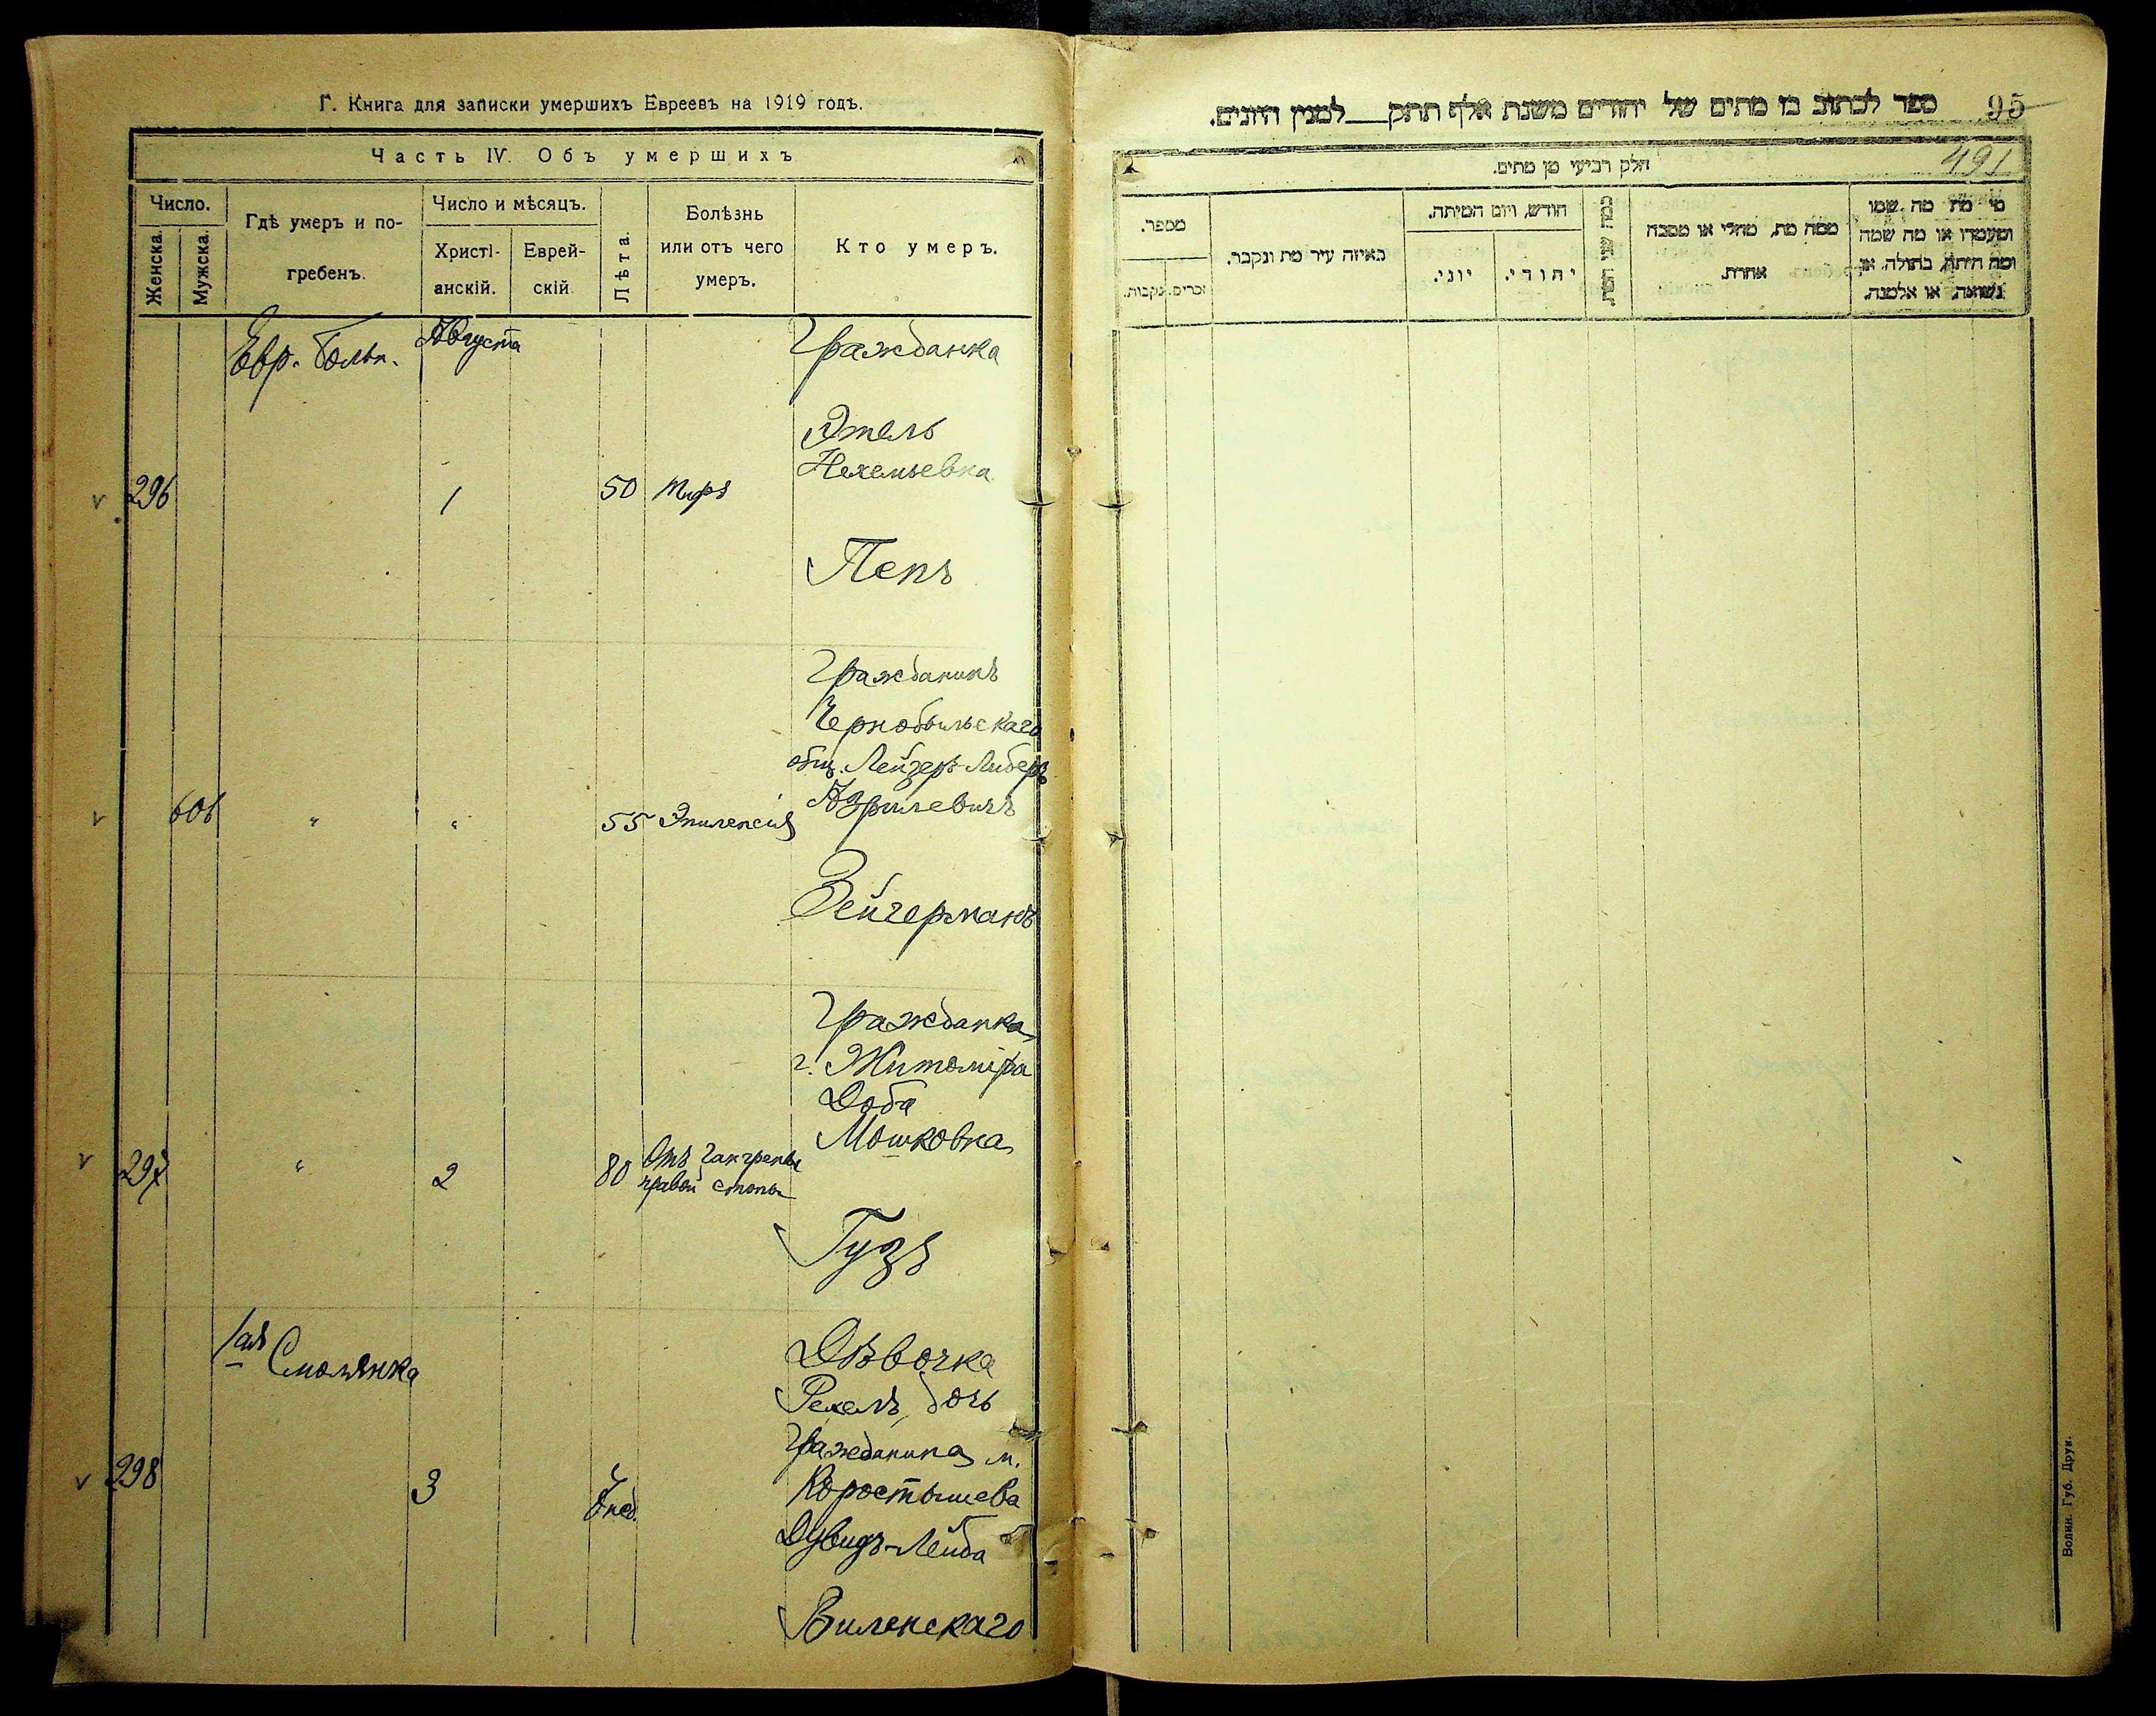 Г. Книга для записки умершихъ Евреевъ на 1919 годъ.
Часть IV. Объ умершихъ
Число.
Женска.
Мужска.
Гдѣ умеръ и по-
гребенъ.
Число и мѣсяцъ.
Христі-
анскій.
Еврей-
скій
Лѣта.
Болѣзнь
или отъ чего
умеръ.
Кто умеръ.
Евр. Больн.
Августа
Гражданка
Этель
Нехемьевна
296
1
50
Тифъ
Пекъ
Гражданинъ
Чернобыльскаго
общ. Лейзеръ-Либеръ
Азрилевичъ
606
"
"
55
Эпилепсія
Зейгерманъ
Гражданка
г. Житоміра
Доба
Мошковна
297
"
2
80
Отъ гангрены
правой стопы
Гузъ
Смолянка
Дѣвочка
Рехель дочь
гражданина м.
298
3
8 нед.
Коростышева
Дувидъ-Лейба
Виленскаго
95
ספר לכתוב בו מתים של יהודים משנת אלף תתק למנין היונים.
491
חלק רביעי מן מתים.
מספר.
זכרים.
נקבות.
באיזה עיר מת ונקבר.
חודש, ויום המיתה.
יוני.
יהודי.
כמה שני המת
ממה מת, מחלי או מסבה
אחרת.
מי מת מה שמו
ומעמדו או מה שמה
ומה היתה, בתולה, או
נשואה, או אלמנה.
Волин. Губ. Друк.